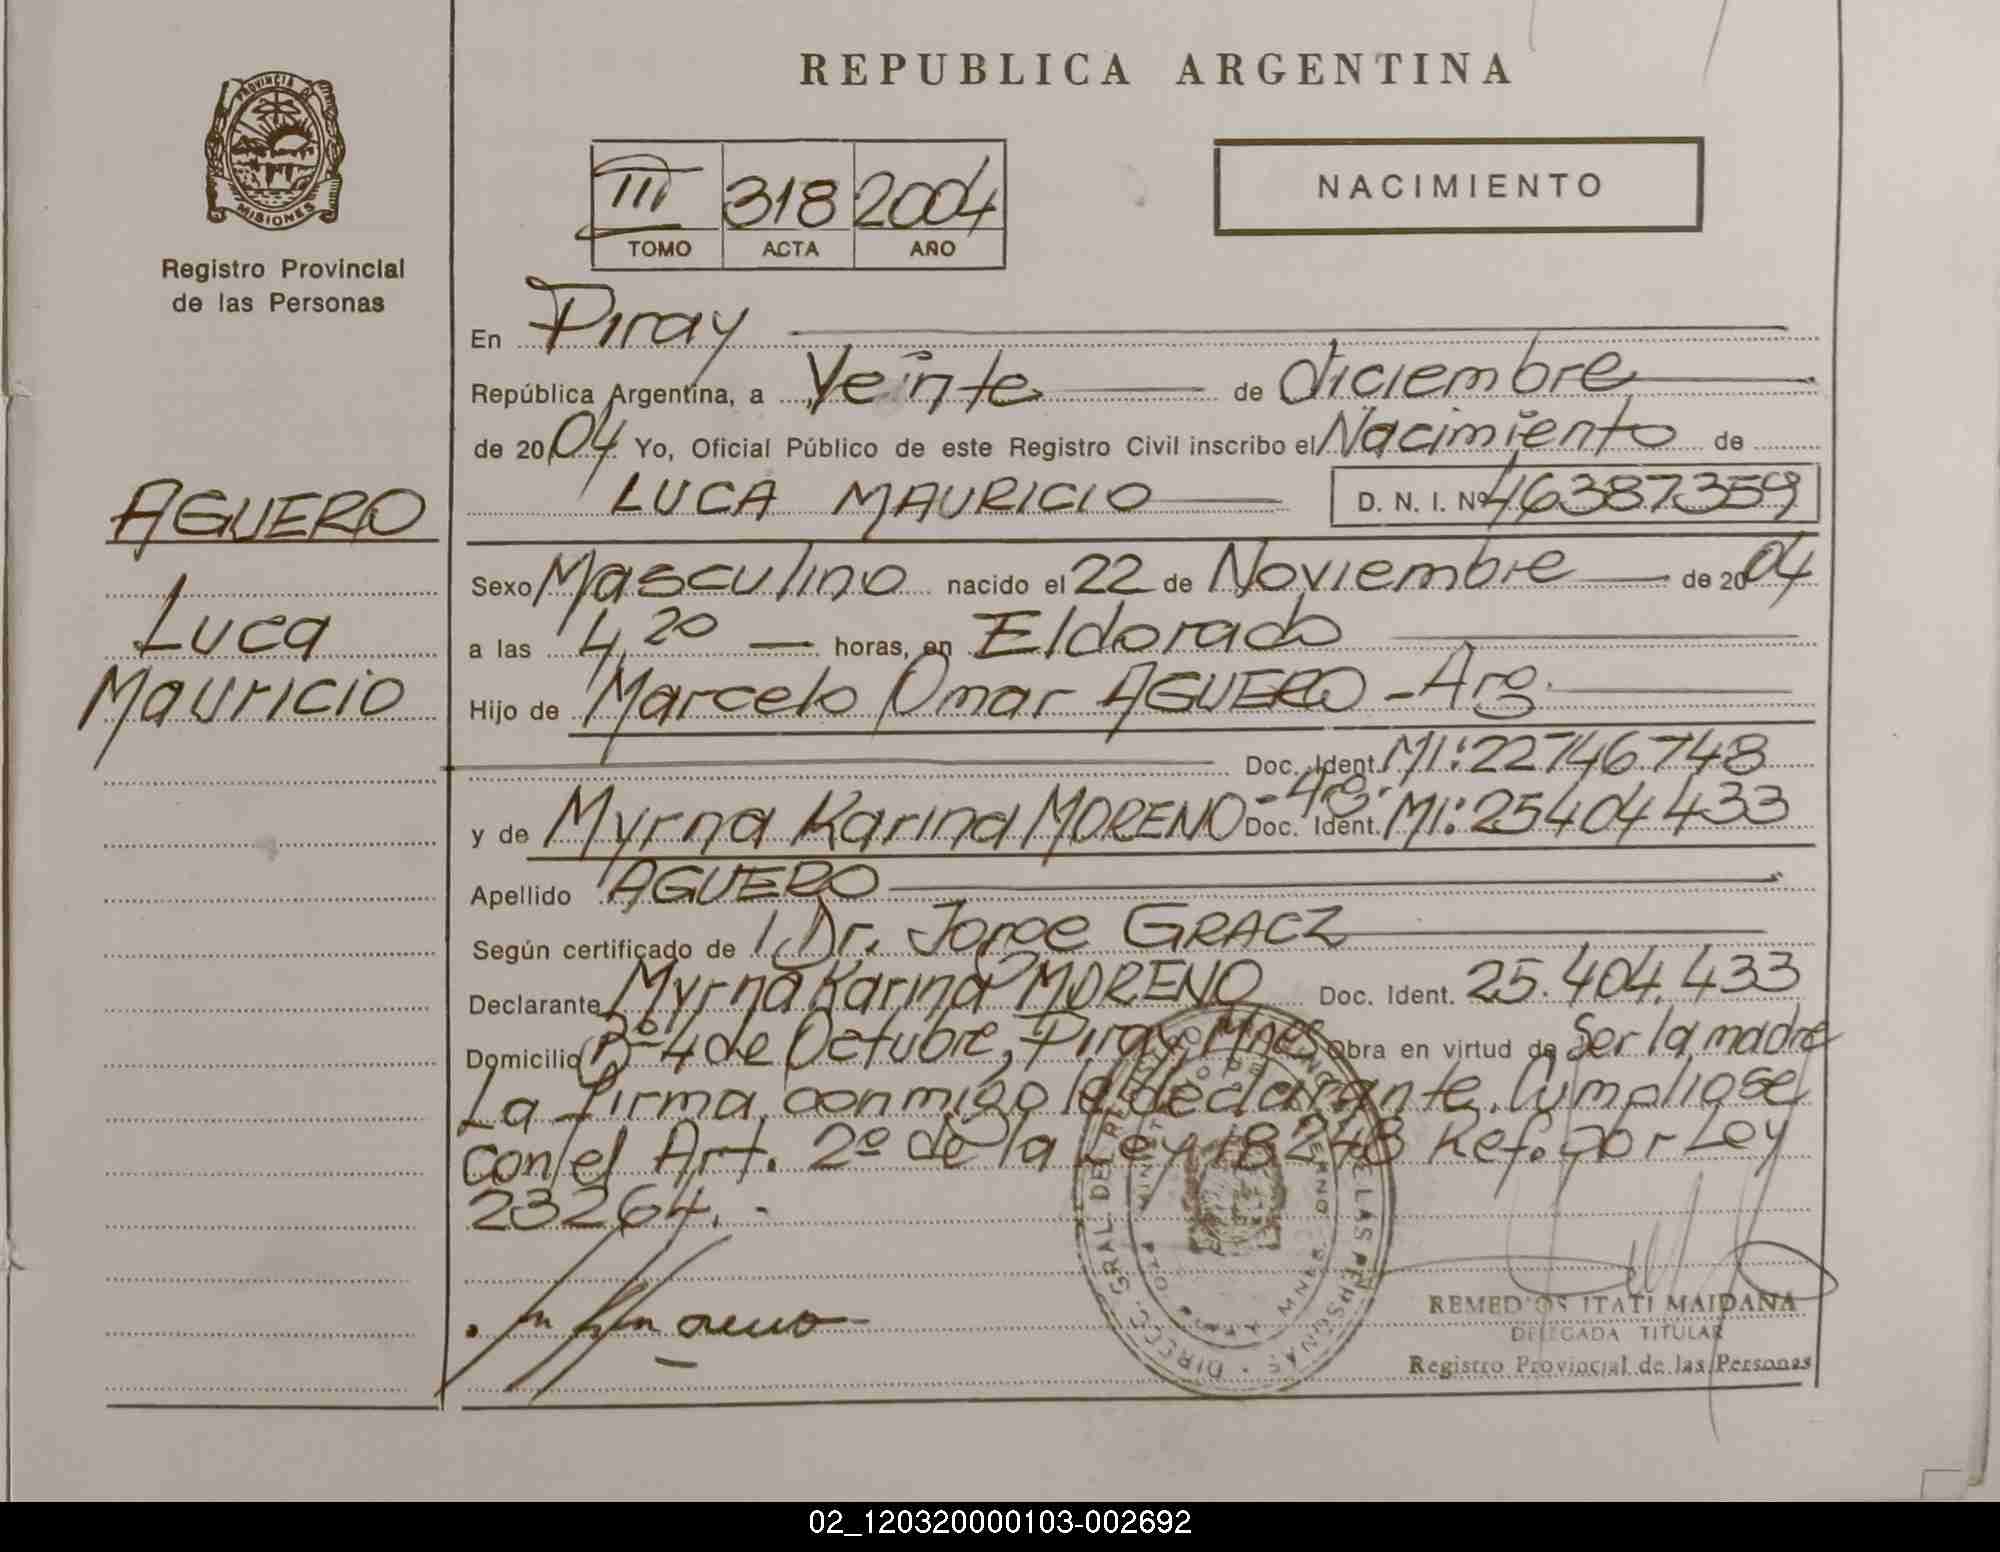 PROVINCIA DE
MISIONES
Registro Provincial
de las Personas
AGUERO
Luca
Mauricio
REPUBLICA ARGENTINA
III 318 2004
TOMO ACTA AÑO
NACIMIENTO
En Piray
República Argentina, a Veinte de diciembre
de 2004 Yo, Oficial Público de este Registro Civil inscribo el Nacimiento de
LUCA MAURICIO D. N. I. Nº 46387359
Sexo Masculino nacido el 22 de Noviembre de 2004
a las 4,20 horas, en Eldorado
Hijo de Marcelo Omar AGUERO - Arg.
Doc. Ident. MI: 22746748
y de Myrna Karina MORENO - Arg. Doc. Ident. MI: 25404433
Apellido AGUERO
Según certificado de Dr. Jorge GRACZ
Declarante Myrna Karina MORENO Doc. Ident. 25.404.433
Domicilio Bº 4 de Octubre, Piray, Mnes Obra en virtud de Ser la madre
La firma conmigo la declarante. Cumpliose
con el Art. 2º de la Ley 18248 Ref. por Ley
23264. -
REMEDIOS ITATI MAIDANA
DELEGADA TITULAR
Registro Provincial de las Personas
02_120320000103-002692